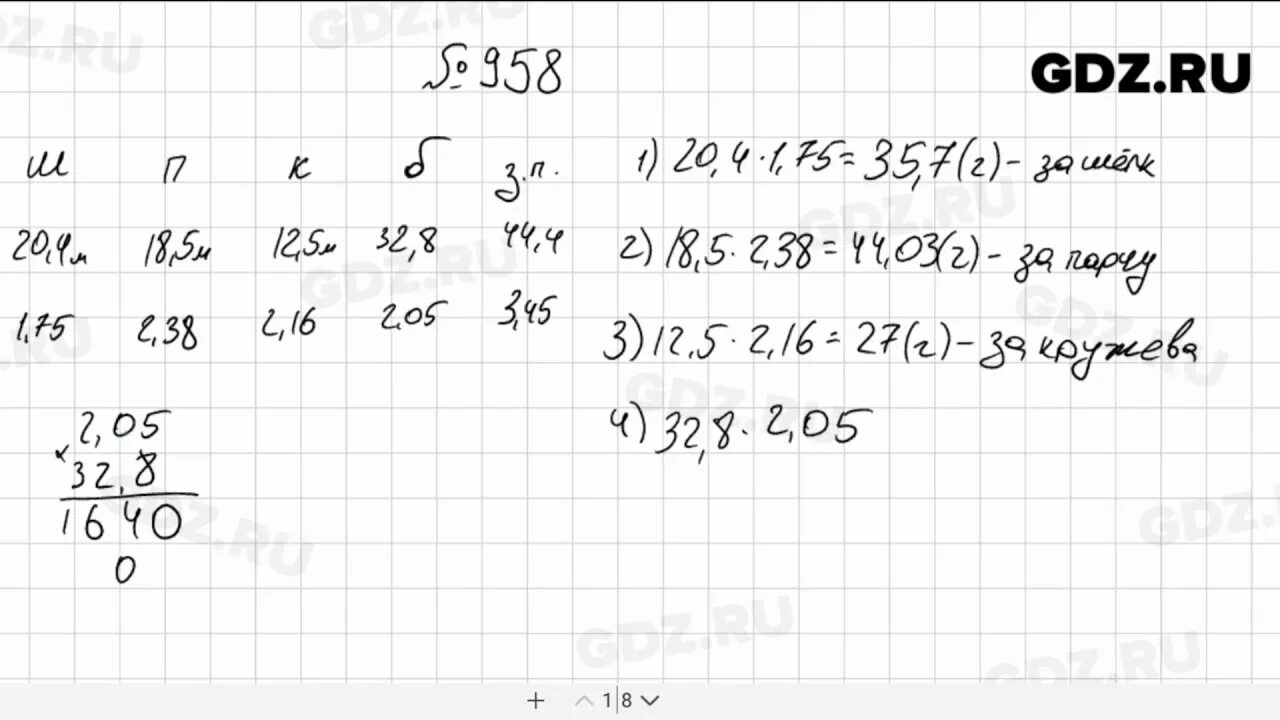 № 958
GDZ.RU
ш п к б з.п.
20,4м 18,5м 12,5м 32,8 44,4
1,75 2,38 2,16 2,05 3,45
1) 20,4 · 1,75 = 35,7 (г) - за шёлк
2) 18,5 · 2,38 = 44,03 (г) - за парчу
3) 12,5 · 2,16 = 27 (г) - за кружева
4) 32,8 · 2,05
2,05
× 32,8
1640
0
1|8